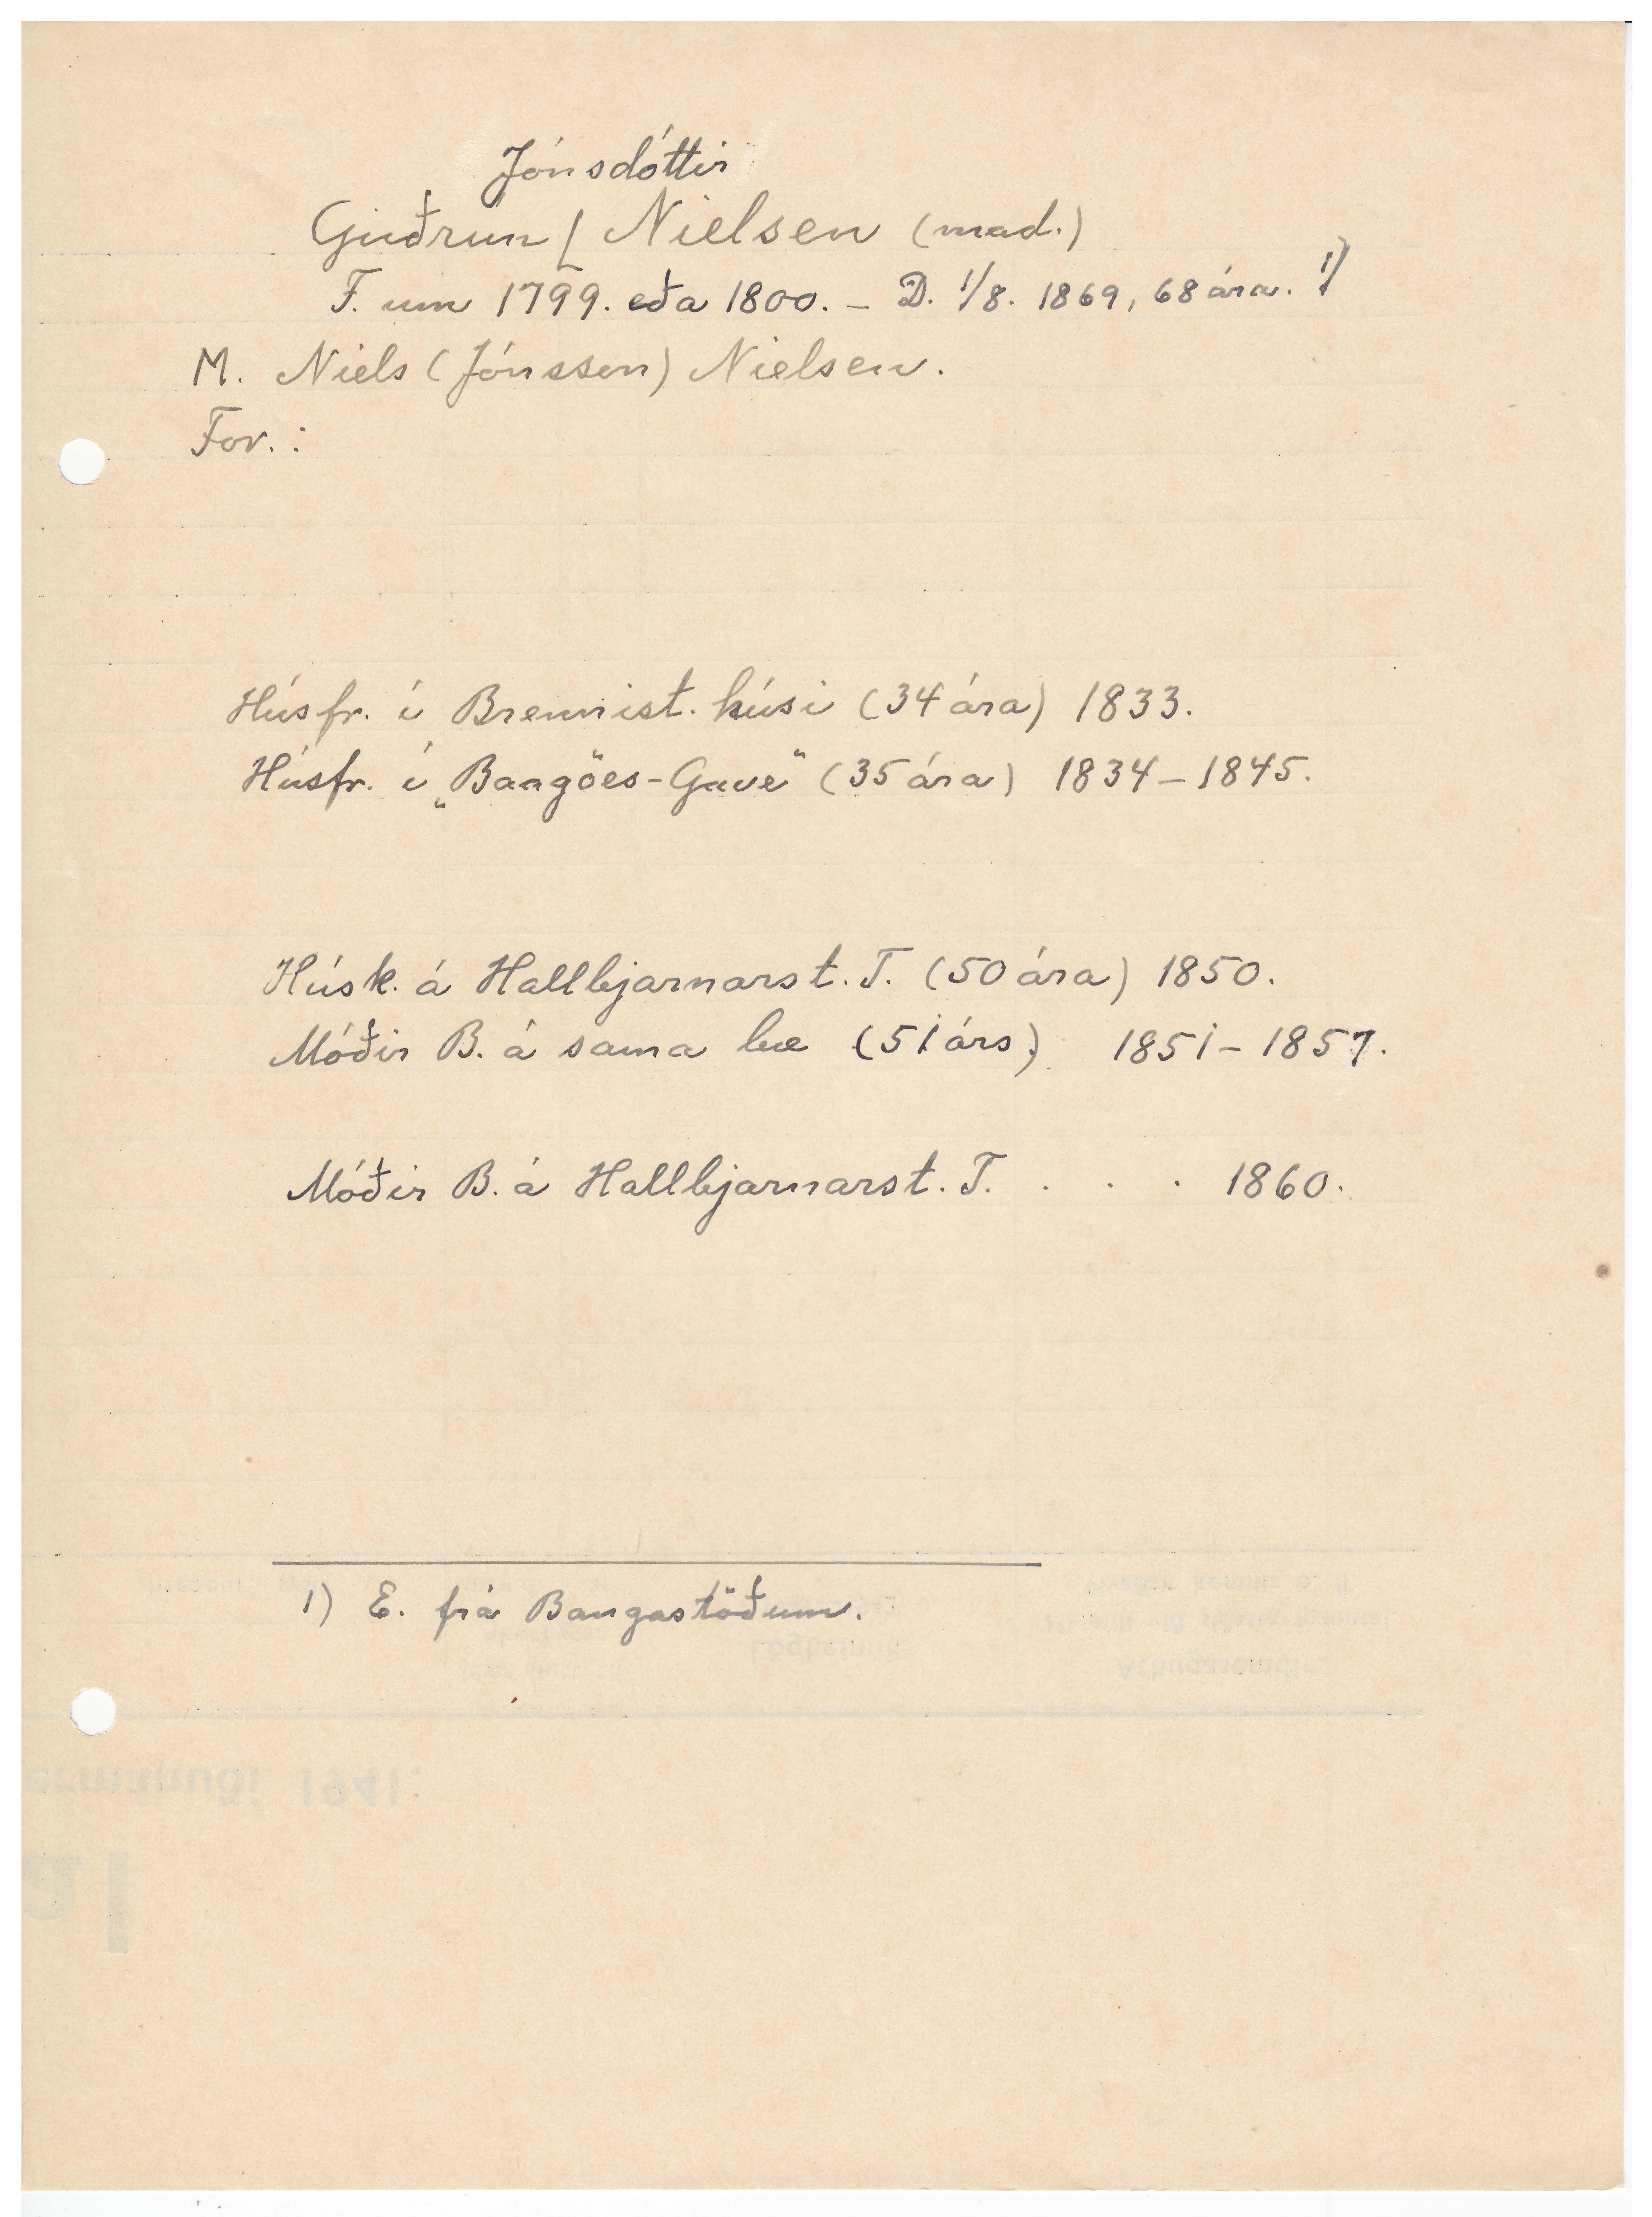 Jónsdóttir
Guðrún ⌊ Nielsen (mad.)
F. um 1799. eða 1800. – D. 1/8. 1869, 68 ára. 1)
M. Niels (Jónssen) Nielsen.
For. :
Húsfr. í Brennist. húsi (34 ára) 1833.
Húsfr. í „Bangöes-Gave“ (35 ára) 1834–1845.
Húsk. á Hallbjarnarst. T. (50 ára) 1850.
Móðir B. á sama bæ (51 árs) 1851–1857.
Móðir B. á Hallbjarnarst. T. . . . 1860.
1) E. frá Bangastöðum.